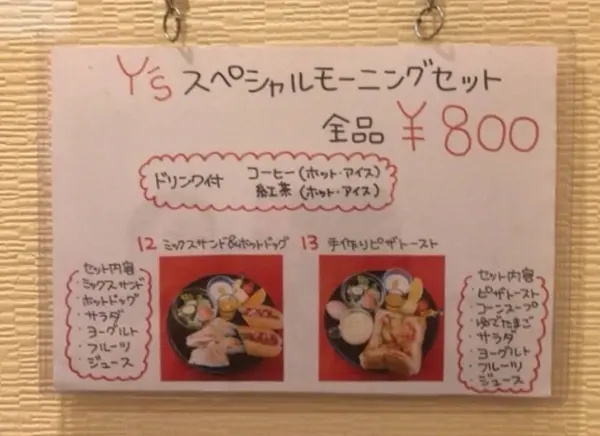 Y'sスペシャルモーニングセット
全品 ¥800
ドリンク付 コーヒー(ホット・アイス)
紅茶(ホット・アイス)
12 ミックスサンド&ホットドッグ
13 手作りピザトースト
セット内容
・ミックスサンド
・ホットドッグ
・サラダ
・ヨーグルト
・フルーツ
・ジュース
セット内容
・ピザトースト
・コーンスープ
・ゆでたまご
・サラダ
・ヨーグルト
・フルーツ
・ジュース